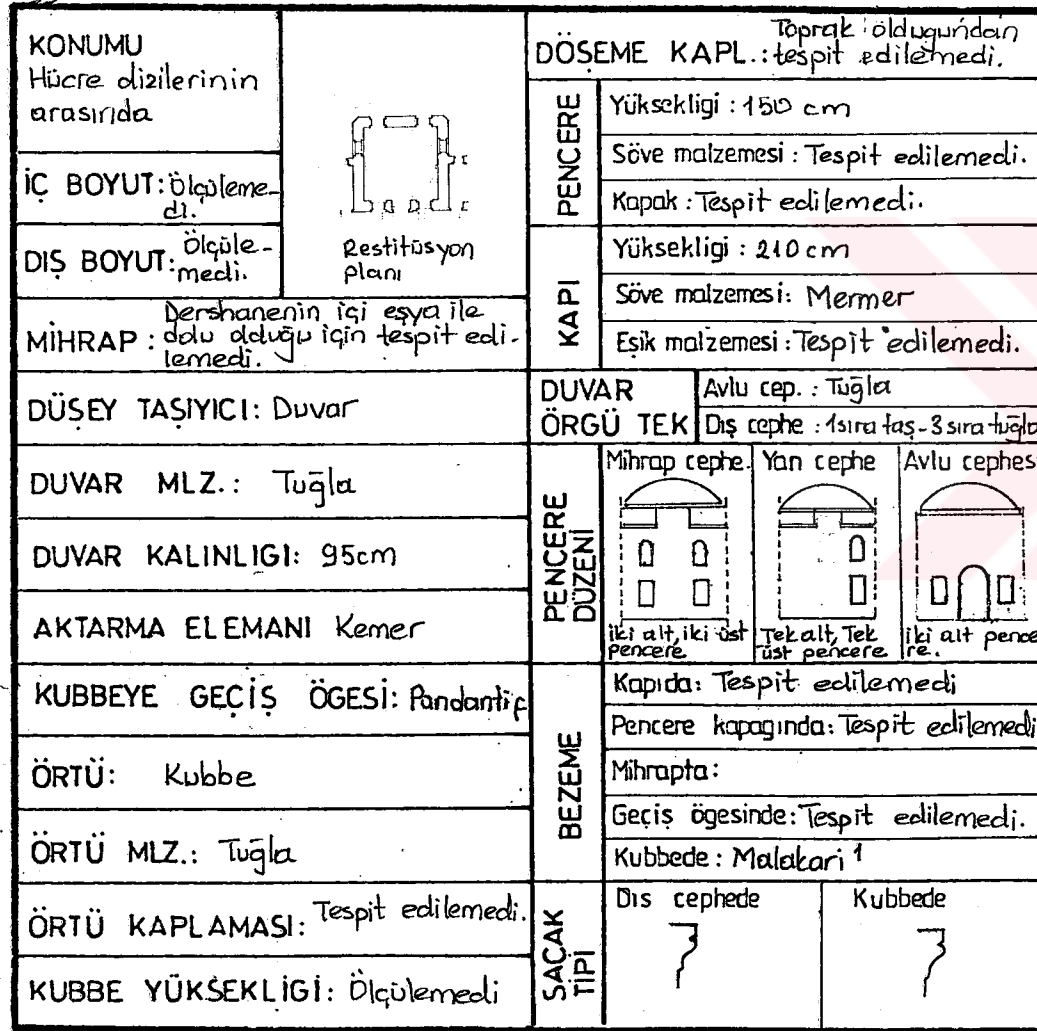 KONUMU
Hücre dizilerinin
arasında
İÇ BOYUT: Ölçüleme-
di.
DIŞ BOYUT: Ölçüle-
medi.
Restitüsyon
planı
MİHRAP : Dershanenin içi eşya ile
dolu olduğu için tespit edi-
lemedi.
DÜŞEY TAŞIYICI: Duvar
DUVAR MLZ.: Tuğla
DUVAR KALINLIGI: 95cm
AKTARMA ELEMANI Kemer
KUBBEYE GEÇİŞ ÖGESİ: Pandantif
ÖRTÜ: Kubbe
ÖRTÜ MLZ.: Tuğla
ÖRTÜ KAPLAMASI: Tespit edilemedi.
KUBBE YÜKSEKLİGİ: Ölçülemedi
DÖŞEME KAPL.: Toprak oldugundan
tespit edilemedi.
PENCERE
Yüksekligi : 150 cm
Söve malzemesi : Tespit edilemedi.
Kapak : Tespit edilemedi.
KAPI
Yüksekligi : 210 cm
Söve malzemesi: Mermer
Eşik malzemesi : Tespit edilemedi.
DUVAR
ÖRGÜ TEK
Avlu cep. : Tuğla
Dış cephe : 1sıra taş-3 sıra tuğla
PENCERE
DÜZENİ
Mihrap cephe.
iki alt, iki üst
pencere
Yan cephe
Tek alt, Tek
üst pencere
Avlu cephes
iki alt pence
re.
BEZEME
Kapıda: Tespit edilemedi
Pencere kapagında: Tespit edilemedi
Mihrapta:
Geçiş ögesinde: Tespit edilemedi.
Kubbede : Malakari 1
SAÇAK
TİPİ
Dıs cephede
Kubbede